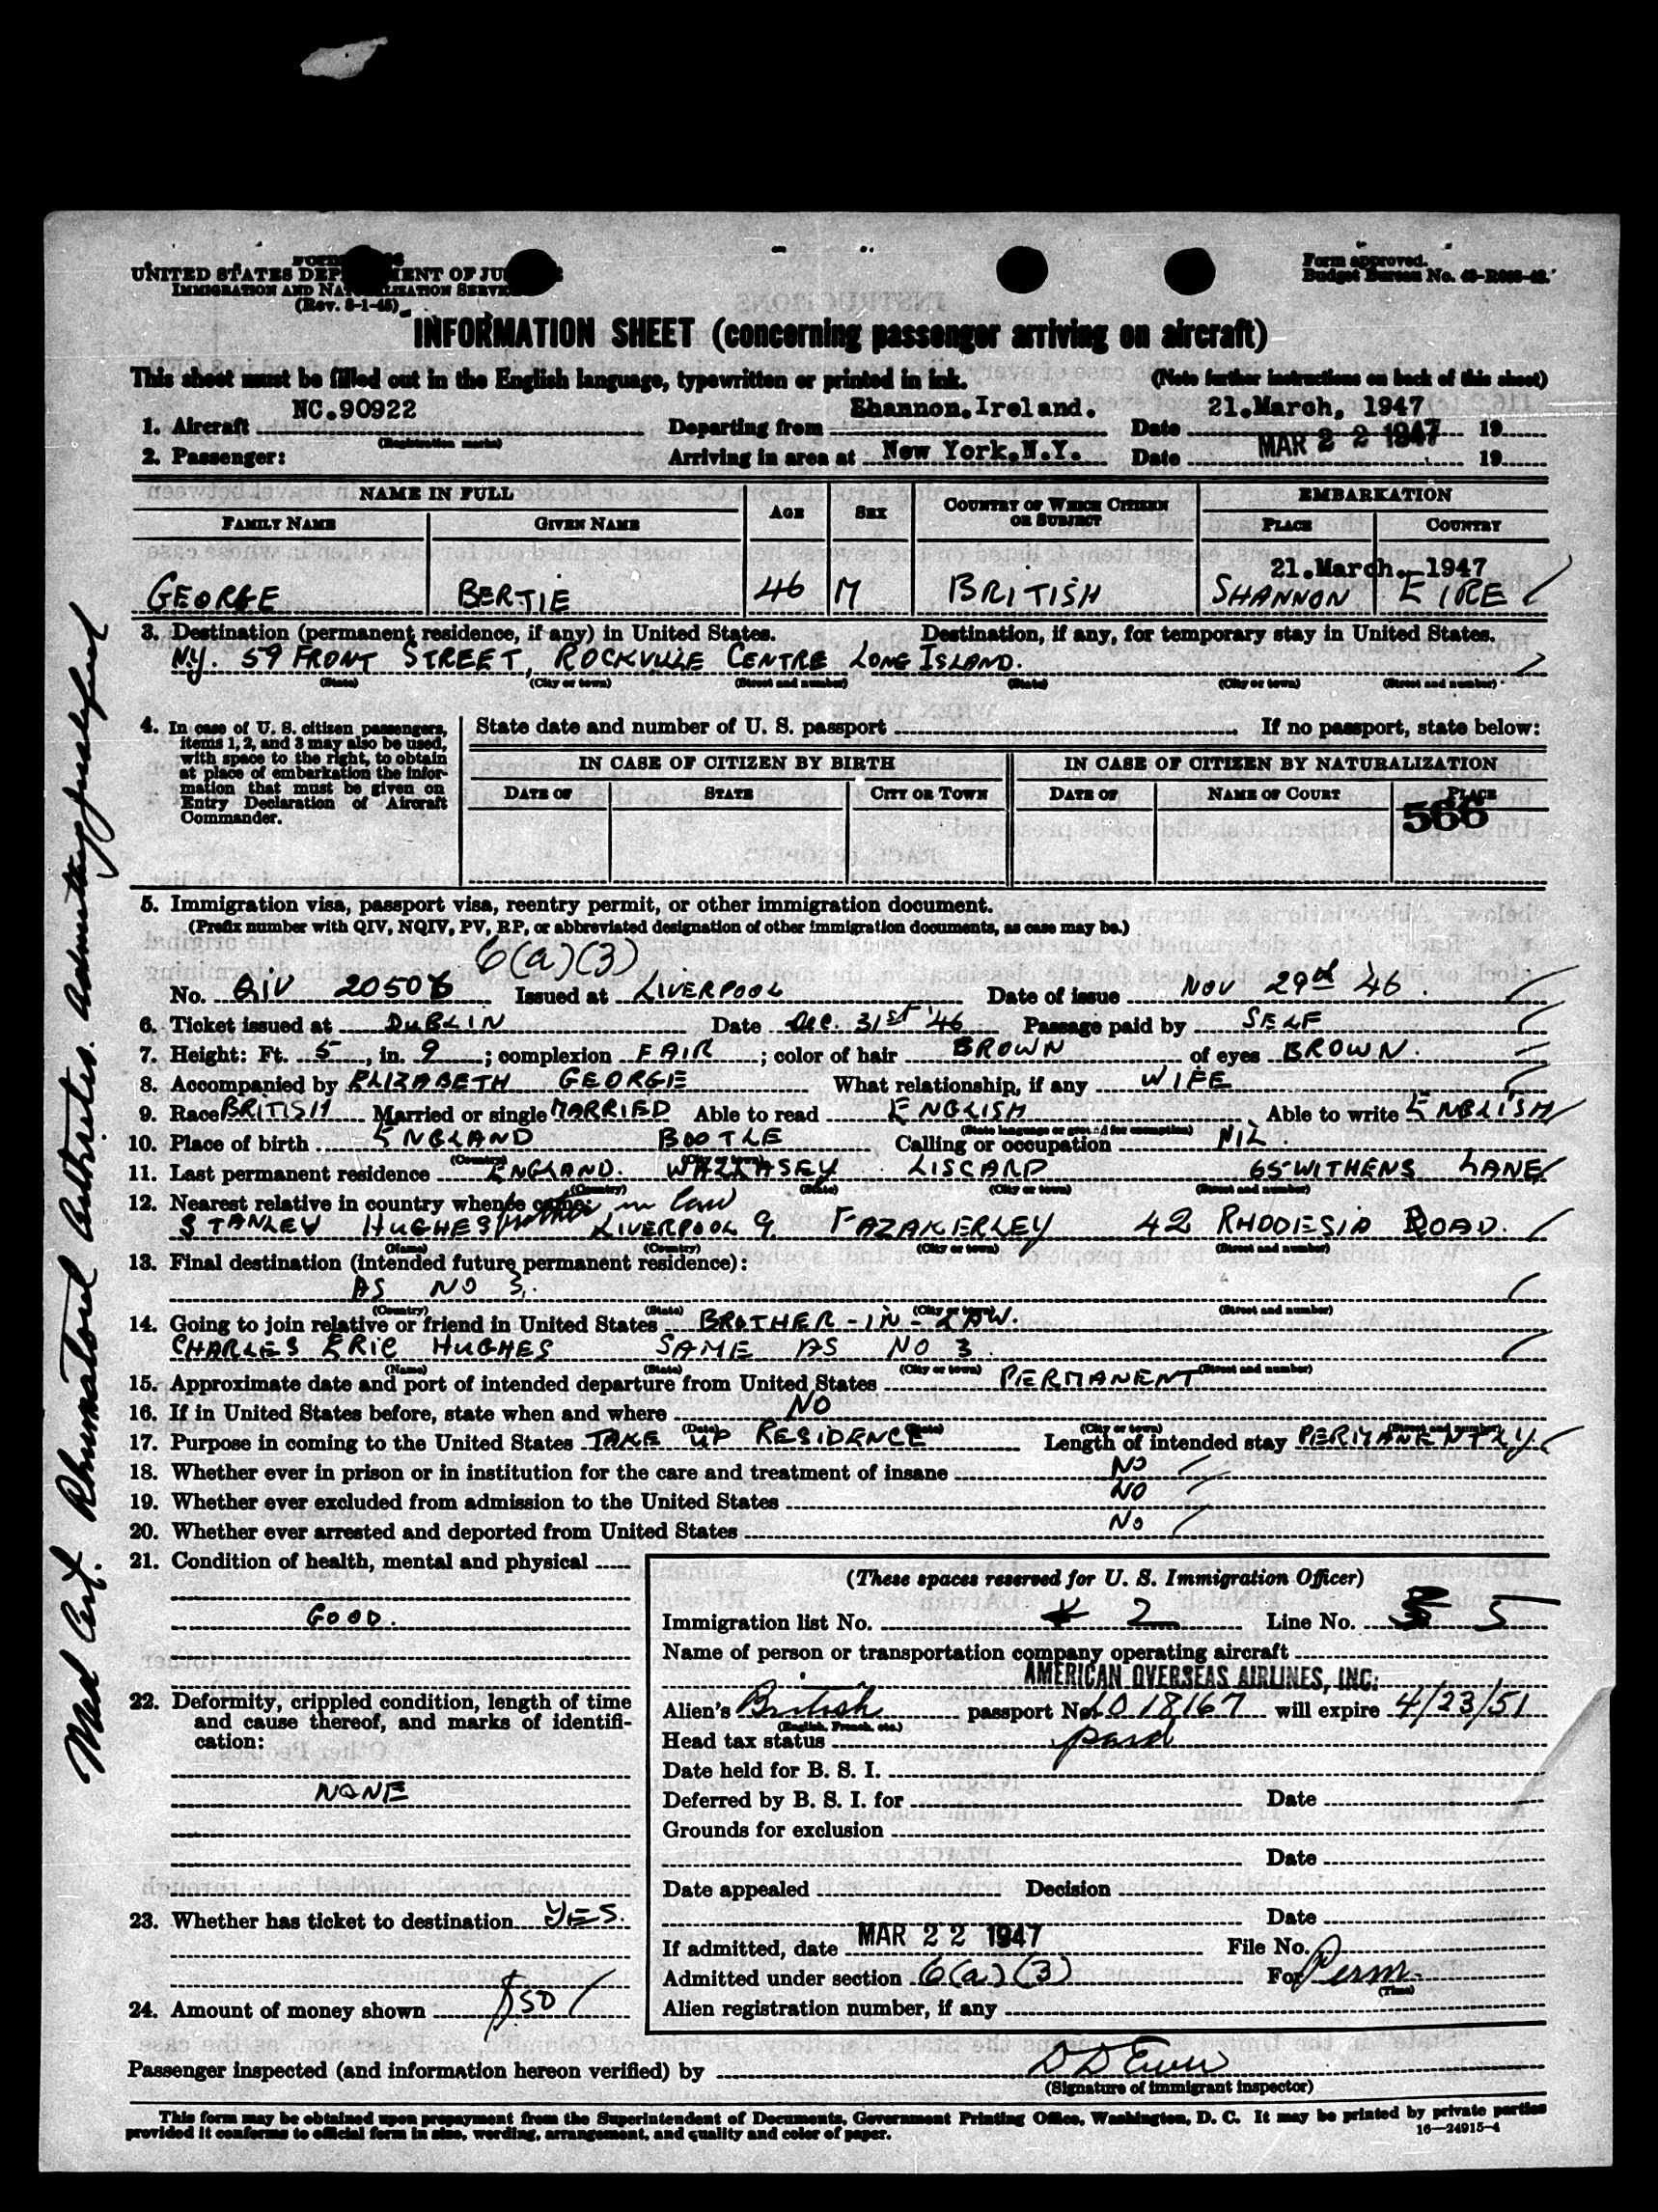 UNITED STATES DEPARTMENT OF JUSTICE
IMMIGRATION AND NATURALIZATION SERVICE
(Rev. 8-1-45)
Form approved.
Budget Bureau No.
INFORMATION SHEET (concerning passenger arriving on aircraft)
This sheet must be filled out in the English language, typewritten or printed in ink. (Note further instructions on back of this sheet)
1. Aircraft NC.90922 Departing from Shannon.Ireland. Date 21.March, 1947 19
(Registration marks)
2. Passenger: Arriving in area at New York.N.Y. Date MAR 22 1947 19
NAME IN FULL AGE SEX COUNTRY OF WHICH CITIZEN OR SUBJECT EMBARKATION
FAMILY NAME GIVEN NAME PLACE COUNTRY
21.March. 1947
GEORGE BERTIE 46 M BRITISH SHANNON EIRE
3. Destination (permanent residence, if any) in United States. Destination, if any, for temporary stay in United States.
N.Y. 59 FRONT STREET, ROCKVILLE CENTRE LONG ISLAND.
(State) (City or town) (Street and number) (State) (City or town) (Street and number)
4. In case of U. S. citizen passengers, items 1, 2, and 3 may also be used, with space to the right, to obtain at place of embarkation the information that must be given on Entry Declaration of Aircraft Commander.
State date and number of U. S. passport If no passport, state below:
IN CASE OF CITIZEN BY BIRTH IN CASE OF CITIZEN BY NATURALIZATION
DATE OF STATE CITY OR TOWN DATE OF NAME OF COURT PLACE
566
5. Immigration visa, passport visa, reentry permit, or other immigration document.
(Prefix number with QIV, NQIV, PV, RP, or abbreviated designation of other immigration documents, as case may be.)
6(a)(3)
No. QIV 20506 Issued at LIVERPOOL Date of issue NOV 29th '46.
6. Ticket issued at DUBLIN Date Dec. 31st '46 Passage paid by SELF
7. Height: Ft. 5, in. 9; complexion FAIR; color of hair BROWN of eyes BROWN.
8. Accompanied by ELIZABETH GEORGE What relationship, if any WIFE
9. Race BRITISH Married or single MARRIED Able to read ENGLISH Able to write ENGLISH
(State language or ground for exemption)
10. Place of birth ENGLAND BOOTLE Calling or occupation NIL.
(Country) (City or town)
11. Last permanent residence ENGLAND. WALLASEY LISCARD 65 WITHENS LANE
(Country) (State) (City or town) (Street and number)
12. Nearest relative in country whence came: brother in law
STANLEY HUGHES LIVERPOOL 9. FAZAKERLEY 42 RHODESIA ROAD.
(Name) (Country) (City or town) (Street and number)
13. Final destination (intended future permanent residence):
AS NO 3.
(Country) (State) (City or town) (Street and number)
14. Going to join relative or friend in United States BROTHER-IN-LAW.
CHARLES ERIC HUGHES SAME AS NO 3
(Name) (State) (City or town) (Street and number)
15. Approximate date and port of intended departure from United States PERMANENT
16. If in United States before, state when and where NO
(Date) (State) (City or town) (Street and number)
17. Purpose in coming to the United States TAKE UP RESIDENCE Length of intended stay PERMANENTLY
18. Whether ever in prison or in institution for the care and treatment of insane NO
19. Whether ever excluded from admission to the United States NO
20. Whether ever arrested and deported from United States NO
21. Condition of health, mental and physical
GOOD.
22. Deformity, crippled condition, length of time and cause thereof, and marks of identification:
NONE
23. Whether has ticket to destination YES.
24. Amount of money shown $50
(These spaces reserved for U. S. Immigration Officer)
Immigration list No. 2 Line No. 5
Name of person or transportation company operating aircraft
AMERICAN OVERSEAS AIRLINES, INC.
Alien's British passport No. LO 18167 will expire 4/23/51
(English, French, etc.)
Head tax status paid
Date held for B. S. I.
Deferred by B. S. I. for Date
Grounds for exclusion
Date
Date appealed Decision
Date
If admitted, date MAR 22 1947 File No.
Admitted under section 6(a)(3) For Perm.
(Time)
Alien registration number, if any
Passenger inspected (and information hereon verified) by
(Signature of immigrant inspector)
This form may be obtained upon prepayment from the Superintendent of Documents, Government Printing Office, Washington, D. C. It may be printed by private parties
provided it conforms to official form in size, wording, arrangement, and quality and color of paper.
16—24915-4
Med Cert. Rhumatoid Arthritis.